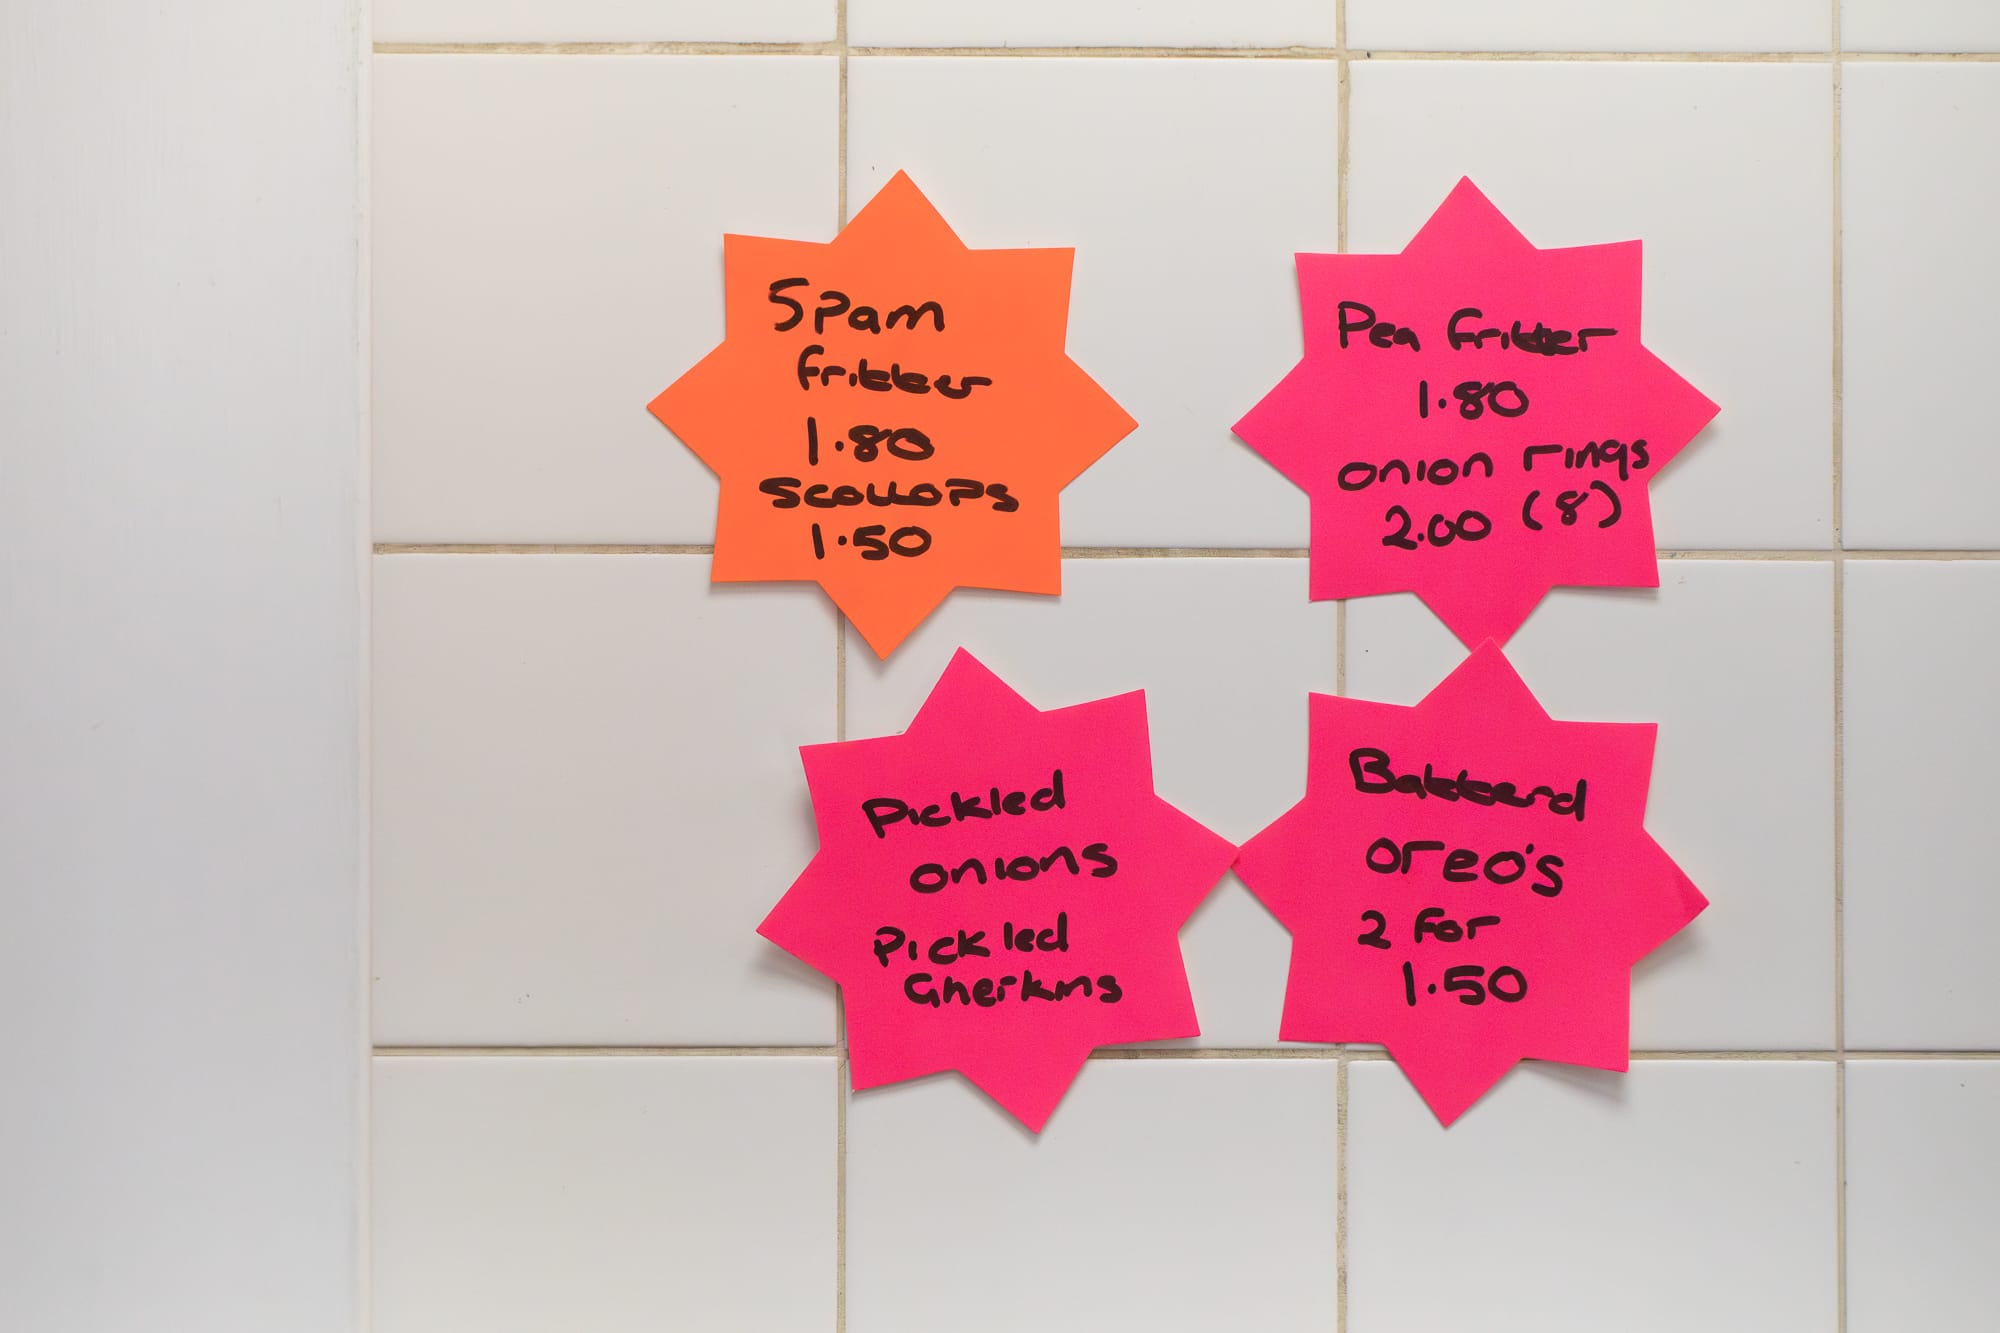 Spam
fritter
1.80
Scollops
1.50
Pea fritter
1.80
onion rings
2.00 (8)
Pickled
onions
Pickled
Gherkins
Batterd
oreo's
2 for
1.50